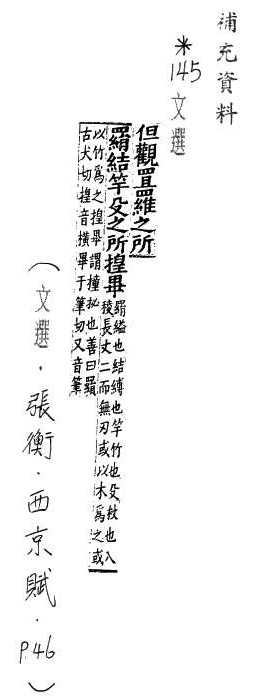 補充資料
*145 文選
但觀罝羅之所
羂結竿殳之所揘畢 羂縊也結縛也竿竹也殳杖也八
稜長丈二而無刃或以木為之或
以竹為之揘畢謂撞㧙也善曰羂
古犬切揘音橫畢于筆切又音筆
(文選・張衡・西京賦・P.46)